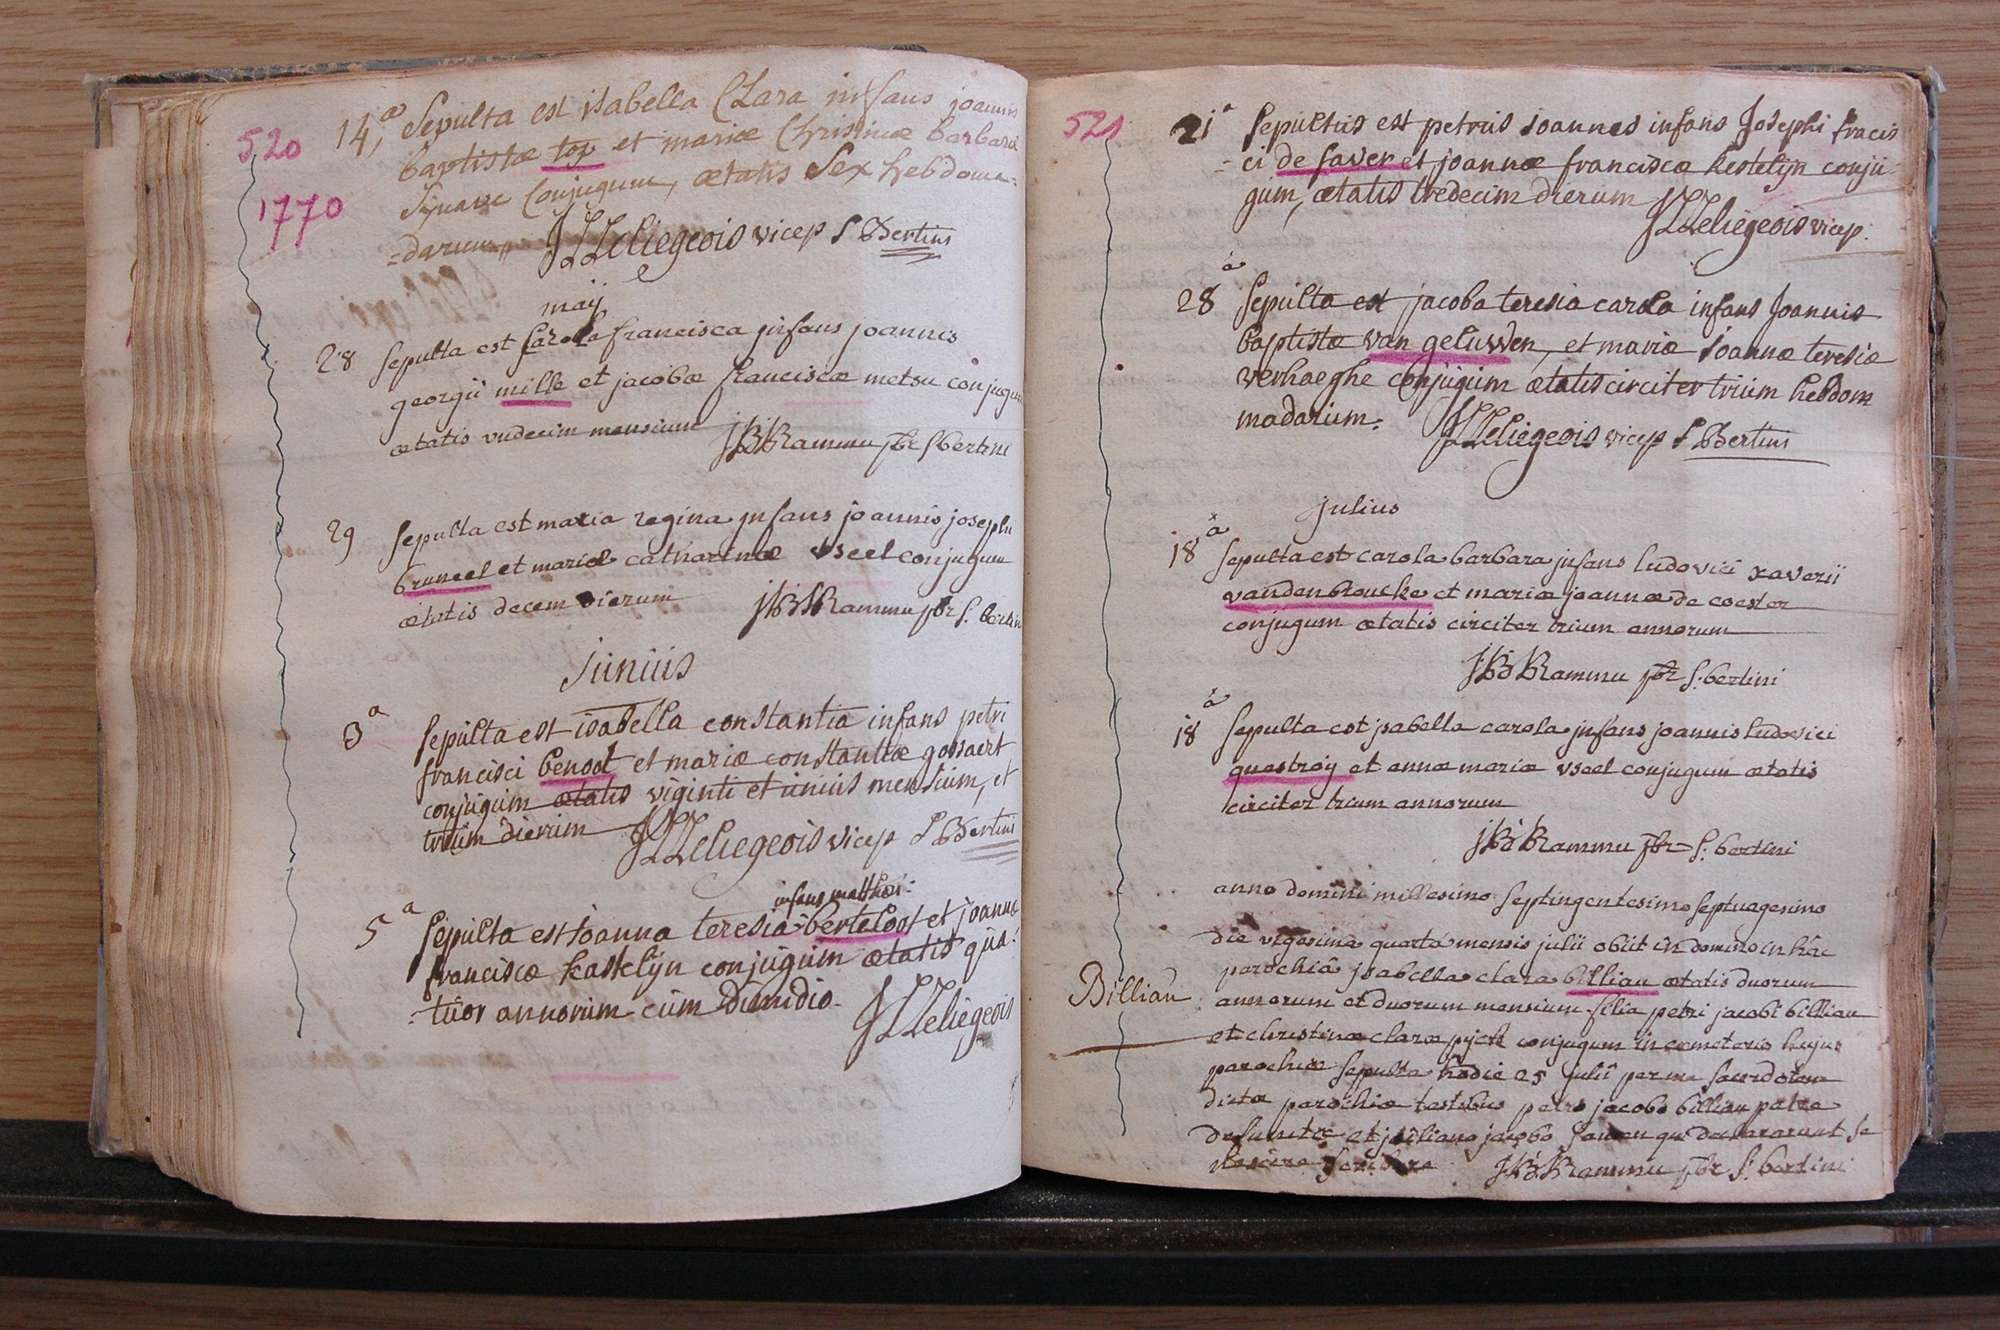 520
1770
14,a Sepulta est isabella Clara infans joannis
baptistæ top et mariæ Christinæ barbara
Conjugum, ætatis Sex hebdoma=
=darum JLLeliegeois vicep S Bertins
maij
28 sepulta est Carola francisca jnfans joannis
georgii mille et jacobæ franciscæ metsu conjugum
ætatis vndecim mensium JBRammu pbr S bertini
29 sepulta est maria regina jnfans joannis josephi
bruneel et mariæ catharinæ vseel conjugum
ætatis decem dierum JBRammu pbr S. bertin
Junius
3a sepulta est isabella constantia infans petri
francisci benoot et mariæ constantiæ gossaert
conjugum ætatis viginti et unius mensium, et
trium dierum JLLeliegeois vicep S Bertini
infans matthæi
5a sepulta est joanna teresia berteloot et joannæ
franciscæ kastelijn conjugum ætatis qua=
=tuor annorum cum dimidio JLLeliegeois
521
21a sepultus est petrus joannes infans Josephi fracis
=ci de faver et joannæ franciscæ kestelijn conju=
gum, ætatis tredecim dierum
JLLeliegeois vicep.
28a sepulta est jacoba teresia carola infans Joannis
baptistæ van geluwen, et mariæ joannæ teresiæ
verhaeghe conjugum ætatis circiter trium hebdom
madarum. JLLeliegeois vicep S Bertini
julius
18a sepulta est carola barbara jnfans ludovici xaverii
vandenbroucke et mariæ joannæ de coester
conjugum ætatis circiter trium annorum
JBRammu pbr S. bertini
18a sepulta est jsabella carola jnfans joannis ludovici
questroy et annæ mariæ vseel conjugum ætatis
circiter trium annorum
JBRammu pbr S. bertini
anno domini millesimo septingentesimo septuagesimo
die vigesima quarta mensis julii obiit in domino in hac
parochiâ jsabella clara billiau ætatis duorum
Billiau annorum et duorum mensium filia petri jacobi billiau
et christinæ claræ pijck conjugum in cemeterio hujus
parochiæ sepulta hodie 25 julii per me sacerdotem
dictæ parochiæ testibus petro jacobo billiau patre
defunctæ et juliano jacobo qui declararunt se
nescire scribere JBRammu pbr S. bertini